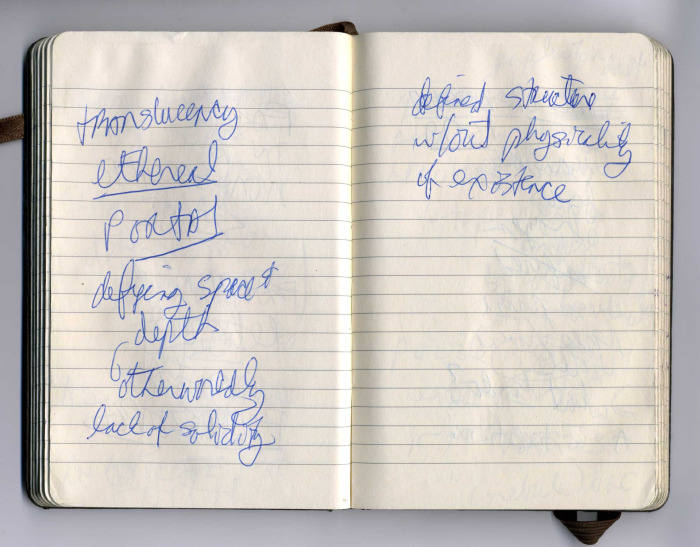 translucency
ethereal
portal
defying space +
depth
otherworldly
lack of solidity
defined structure
w/out physicality
of existence